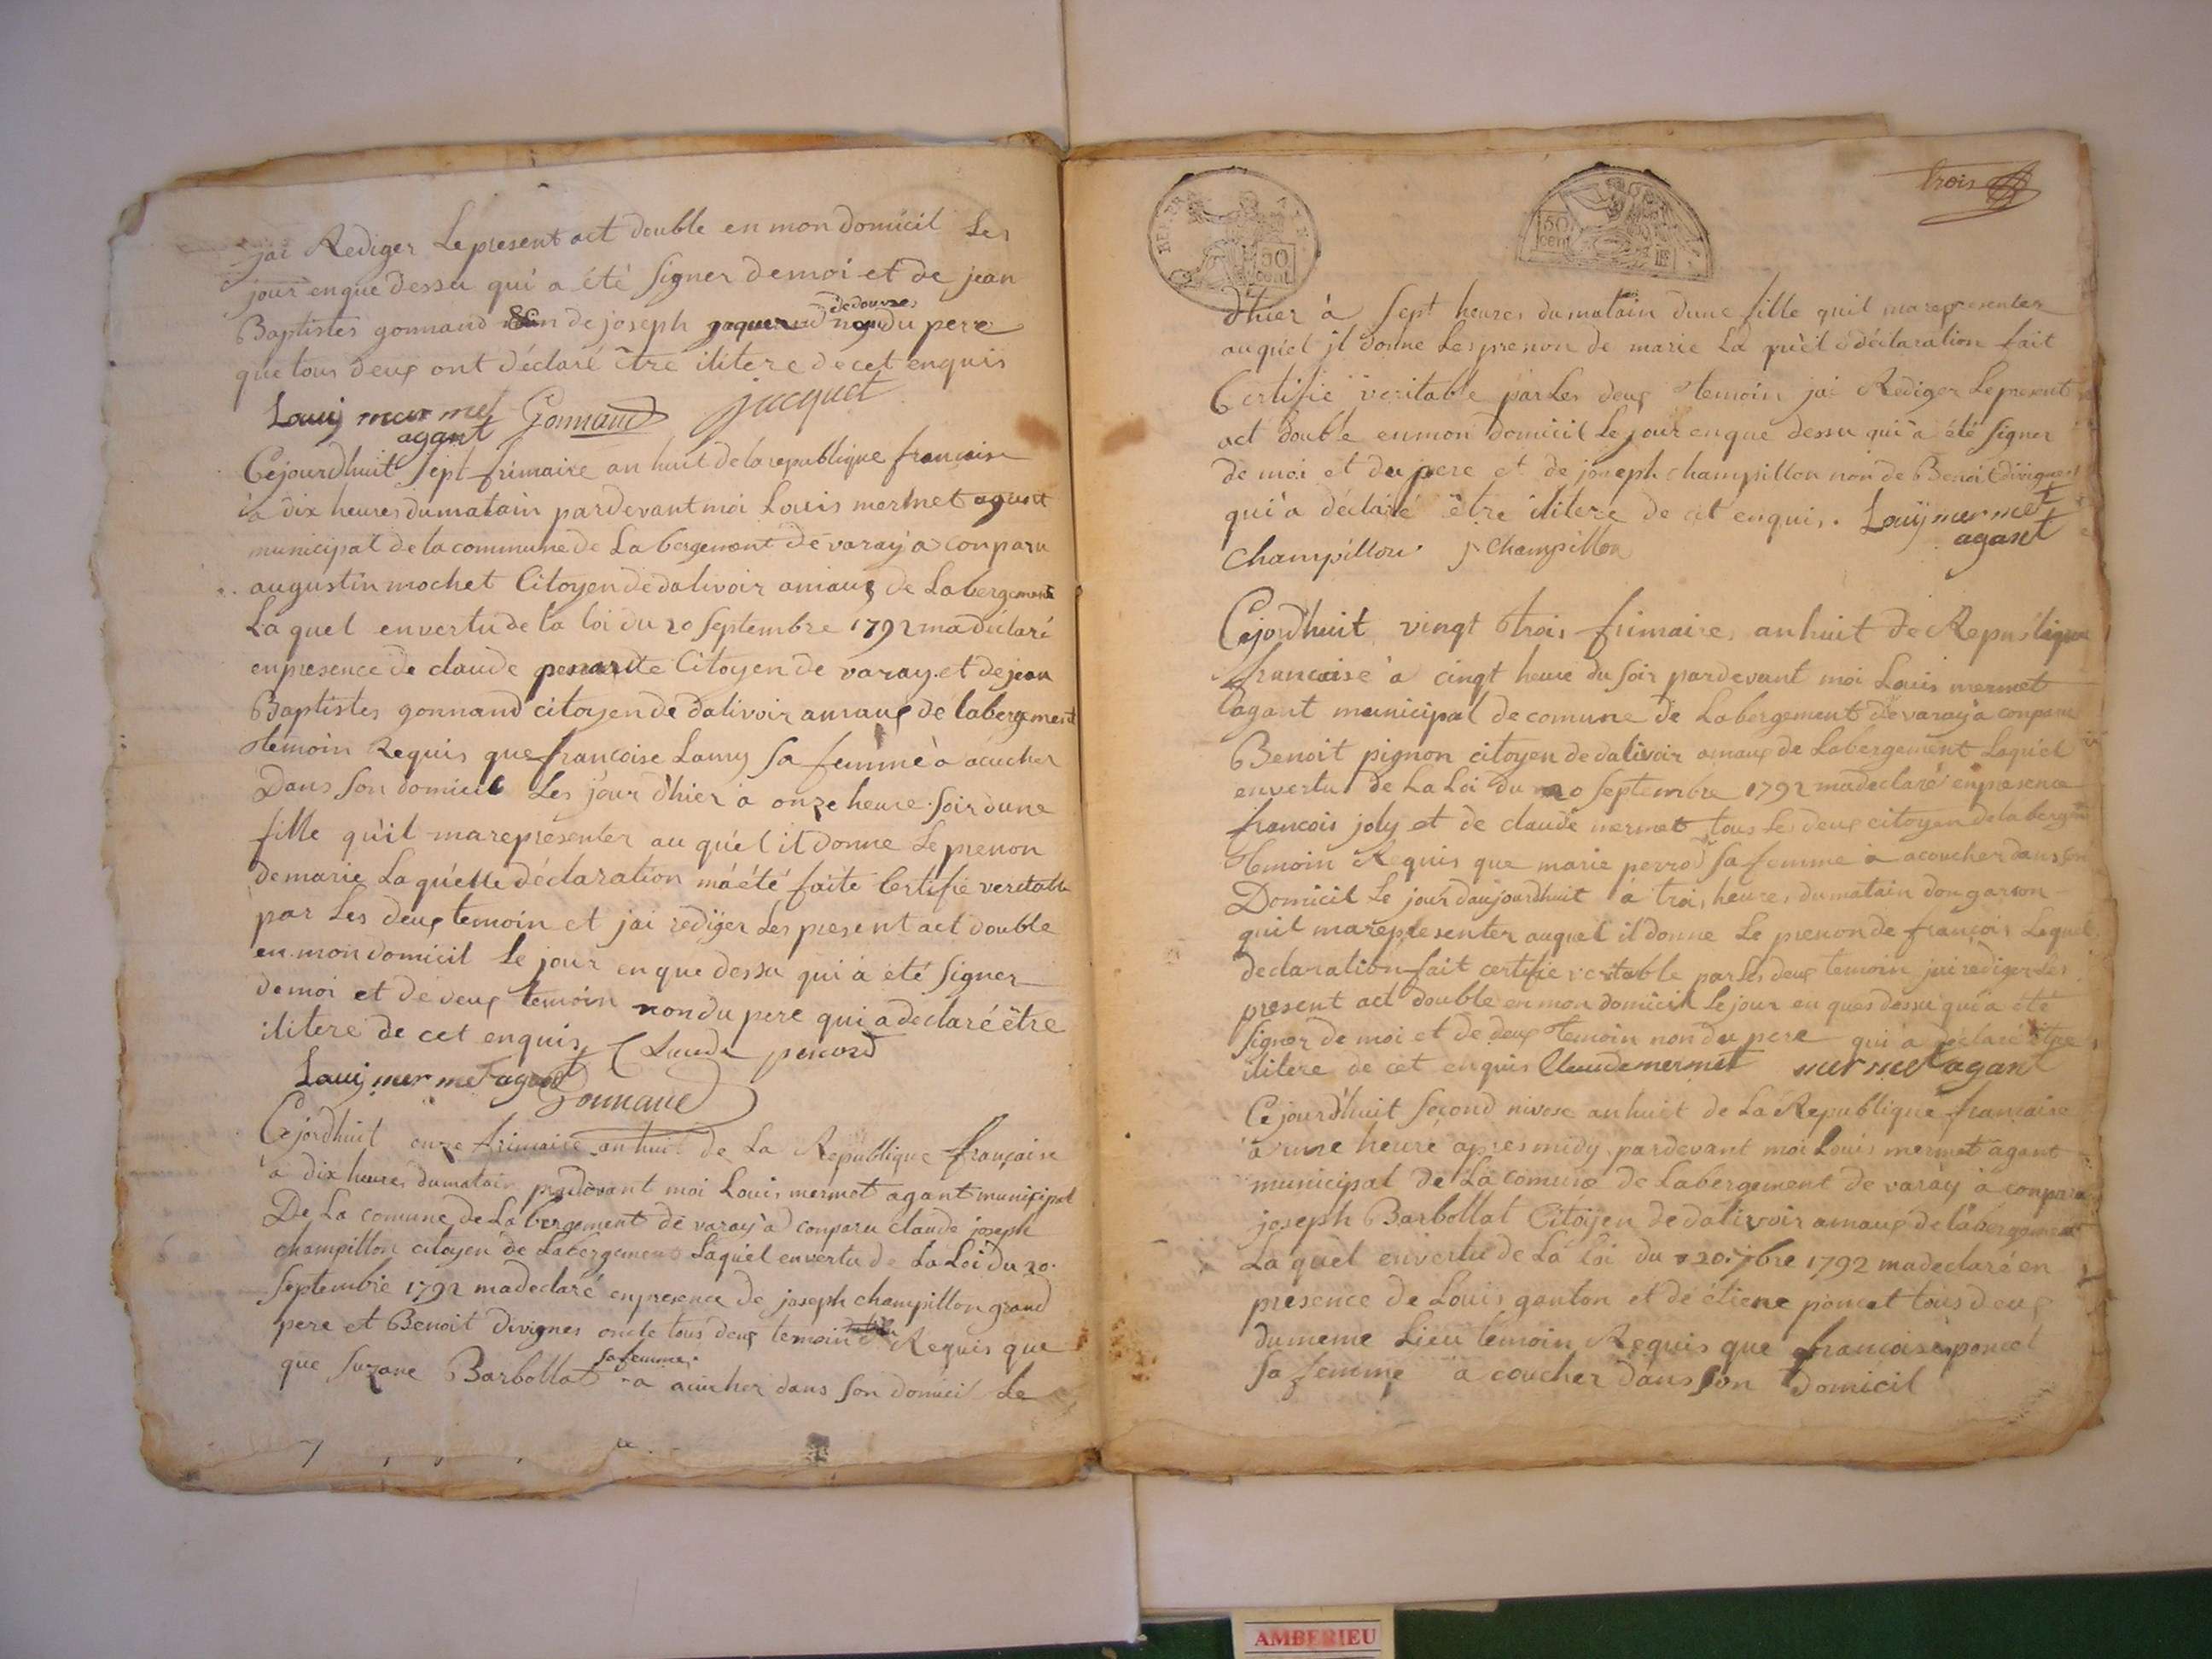 jai Rediger Le present act double en mon domicil Les
jour en que dessu qui a été Signer de moi et de jean
Baptistes gonnand non de joseph de douvres non du pere
que tous deux ont déclaré être ilitere de cet enquis
Louij mermet Gonnand jacquet
agant
Cejourdhuit Sept frimaire an huit de la republique francaise
à dix heures du matain pardevant moi Louis mermet agant
municipal de la commune de Labergement de varay a conparu
augustin mochet Citoyen de dalivoir amaux de Labergement
La quel en vertu de la loi du 20 Septembre 1792 ma déclaré
en presence de claude Citoyen de varay et de jean
Baptistes gonnand citoyen de dalivoir amaux de labergement
temoin Requis que francoise Lamy Sa femme à acucher
Dans Son domicil Les jour d'hier à onze heure Soir dune
fille qu'il ma representer au quél it donne Le prenon
de marie La quélle déclaration má été faite Certifié veritable
par Les deux temoin et jai rediger Les present act double
en mon domicil Le jour en que dessu qui a été Signer
de moi et de deux temoin non du pere qui a declaré être
ilitere de cet enquis Claude
Louij mermet agant Gonnand
Cejordhuit onze frimaire an huit de La Republique française
à dix heures du matain pardevant moi Louis mermet agant municipal
De La comune de Labergement de varay a conparu claude joseph
champillon citoyen de Labergement Laquél en vertu de La Loi du 20
Septembre 1792 ma declaré en presence de joseph champillon grand
pere et Benoit Divignes oncle tous deux temoin Requis que
sa femme
que Suzane Barbollat a acucher dans Son domicil Le
trois
REP. FRA.
50 cent
50 cent
d'hier à Sept heures du matain dune fille quil ma representer
auquél jl donne Les prenon de marie La quél déclaration fait
Certifié veritable par Les deux temoin jai Rediger Le present
act double en mon domicil Le jour en que dessu qui a été Signer
de moi et du pere et de joseph champillon non de Benoit divignes
qui à déclaré être ilitere de cet enquis. Louij mermet
agant
Champillon j champillon
Cejordhuit vingt trois frimaires an huit de Republique
francaise à cingt heure du Soir pardevant moi Louis mermet
lagant municipal de comune de Labergement de varay a conparu
Benoit pignon citoyen de dalivoir amaux de Labergement Laquél
en vertu de La Loi du 20 Septembre 1792 ma declaré en presence
francois joly et de claude mermet tous Les deux citoyen de labergement
temoin Requis que marie perrod Sa femme à acoucher dans
Domicil Le jour daujourdhuit à trois heures du matain don garson
quil ma representer auquel il donne Le prenon de francois Laquél
declaration fait certifie veritable par Les deux temoin jai rediger Les
present act double en mon domicil Le jour en ques dessu qui a été
Signer de moi et de deux temoin non du pere qui à déclaré être
ilitere de cet enquis Claude mermet mermet agant
Cejourd'huit Second nivose an huit de La Republique francaise
à une heure apres midy pardevant moi Louis mermet agant
municipal de La comune de Labergement de varay à conparu
joseph Barbollat Citoyen de dalivoir amaux de labergement
La quél en vertu de La loi du 20. 7bre 1792 ma declaré en
presence de Louis ganton et de etiene poncet tous deux
du meme Lieu temoin Requis que francoise poncet
Sa femme à coucher dans Son Domicil
AMBERIEU